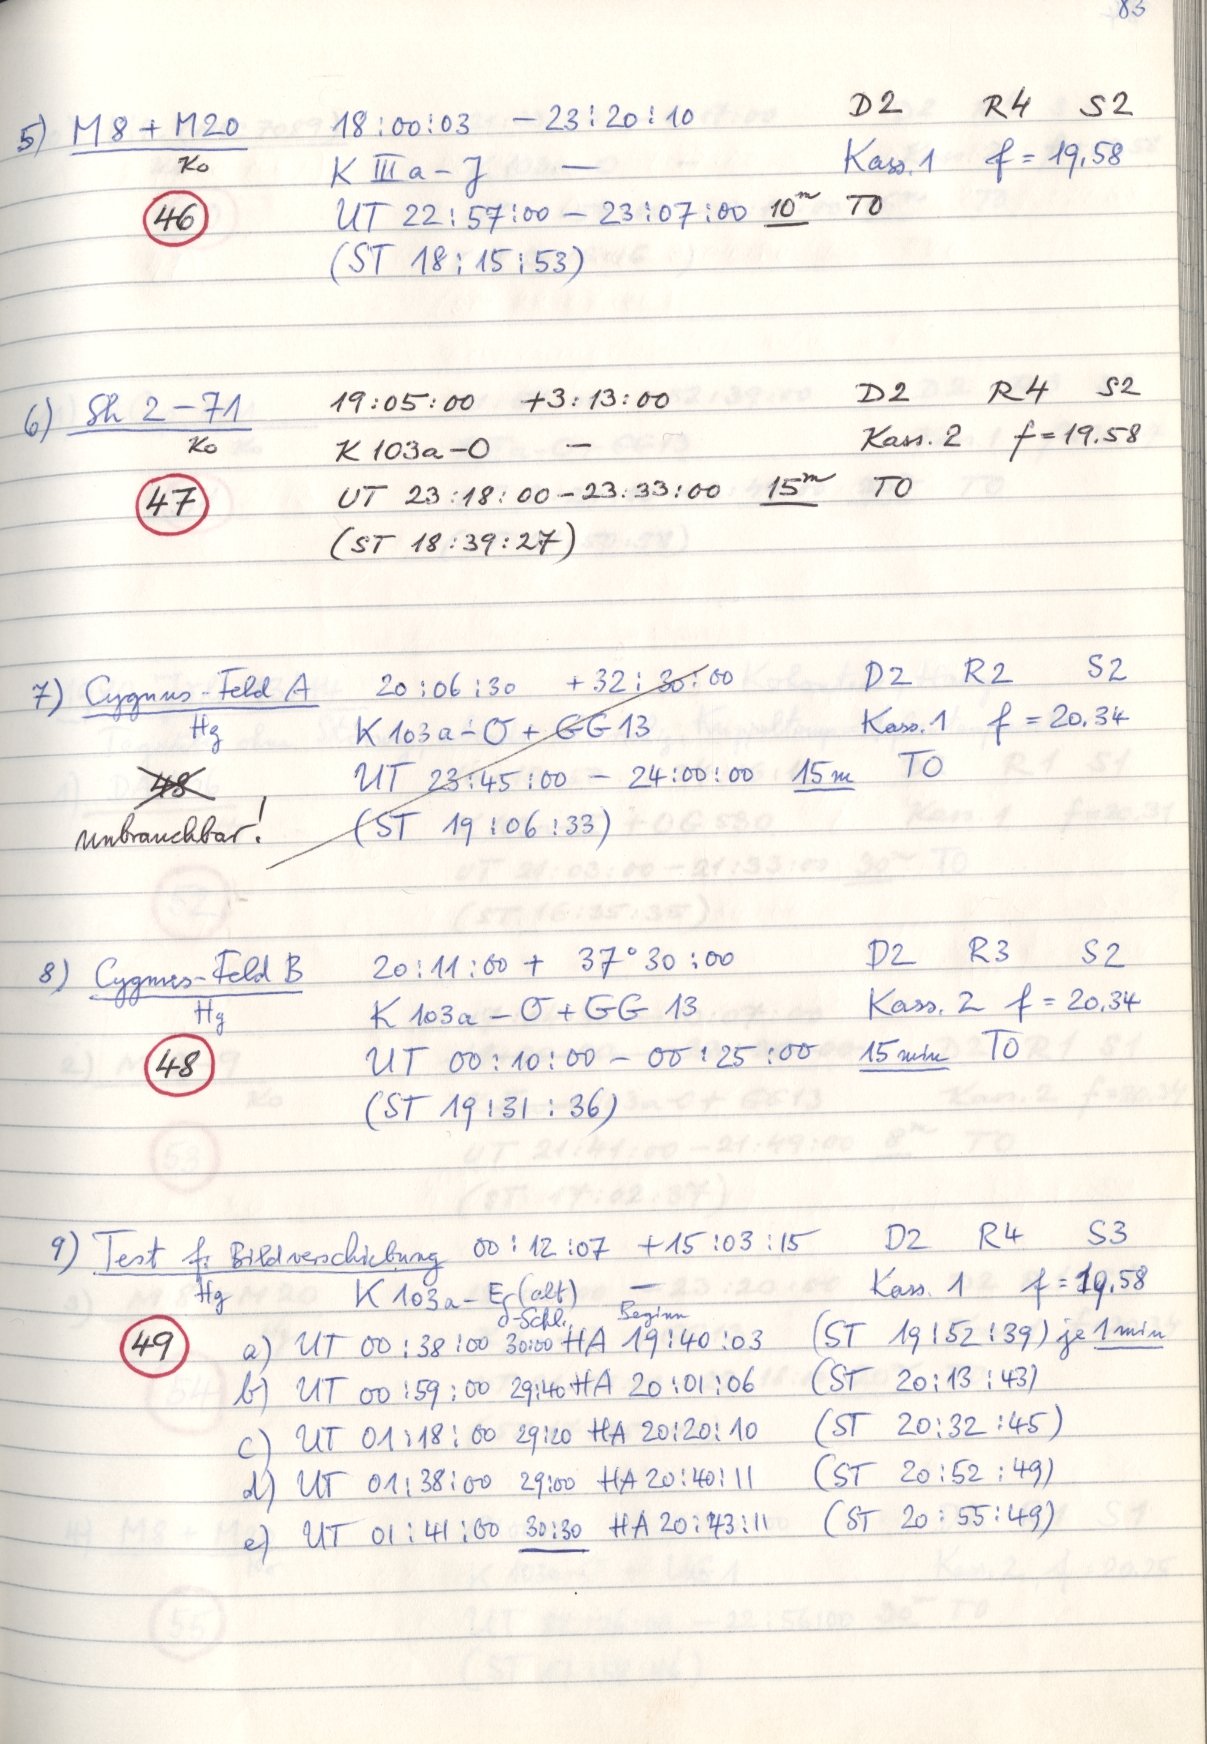 83
5) M8 + M20 18:00:03 -23:20:10 D2 R4 S2
Ko K IIIa-J — Kass. 1 f = 19,58
46 UT 22:57:00 - 23:07:00 10m TO
(ST 18:15:53)
6) Sh 2-71 19:05:00 +3:13:00 D2 R4 S2
Ko K 103a-O — Kass. 2 f = 19.58
47 UT 23:18:00 - 23:33:00 15m TO
(ST 18:39:27)
7) Cygnus-Feld A 20:06:30 +32:30:00 D2 R2 S2
Hg K 103a-O + GG 13 Kass. 1 f = 20.34
48 UT 23:45:00 - 24:00:00 15m TO
unbrauchbar! (ST 19:06:33)
8) Cygnus-Feld B 20:11:00 + 37°30:00 D2 R3 S2
Hg K 103a-O + GG 13 Kass. 2 f = 20,34
48 UT 00:10:00 - 00:25:00 15min TO
(ST 19:31:36)
9) Test f. Bildverschiebung 00:12:07 +15:03:15 D2 R4 S3
Hg K 103a-E (alt) — Kass. 1 f = 19.58
δ-Schl. Beginn
49 a) UT 00:38:00 30:00 HA 19:40:03 (ST 19:52:39) je 1min
b) UT 00:59:00 29:40 HA 20:01:06 (ST 20:13:43)
c) UT 01:18:00 29:20 HA 20:20:10 (ST 20:32:45)
d) UT 01:38:00 29:00 HA 20:40:11 (ST 20:52:49)
e) UT 01:41:00 30:30 HA 20:43:11 (ST 20:55:49)